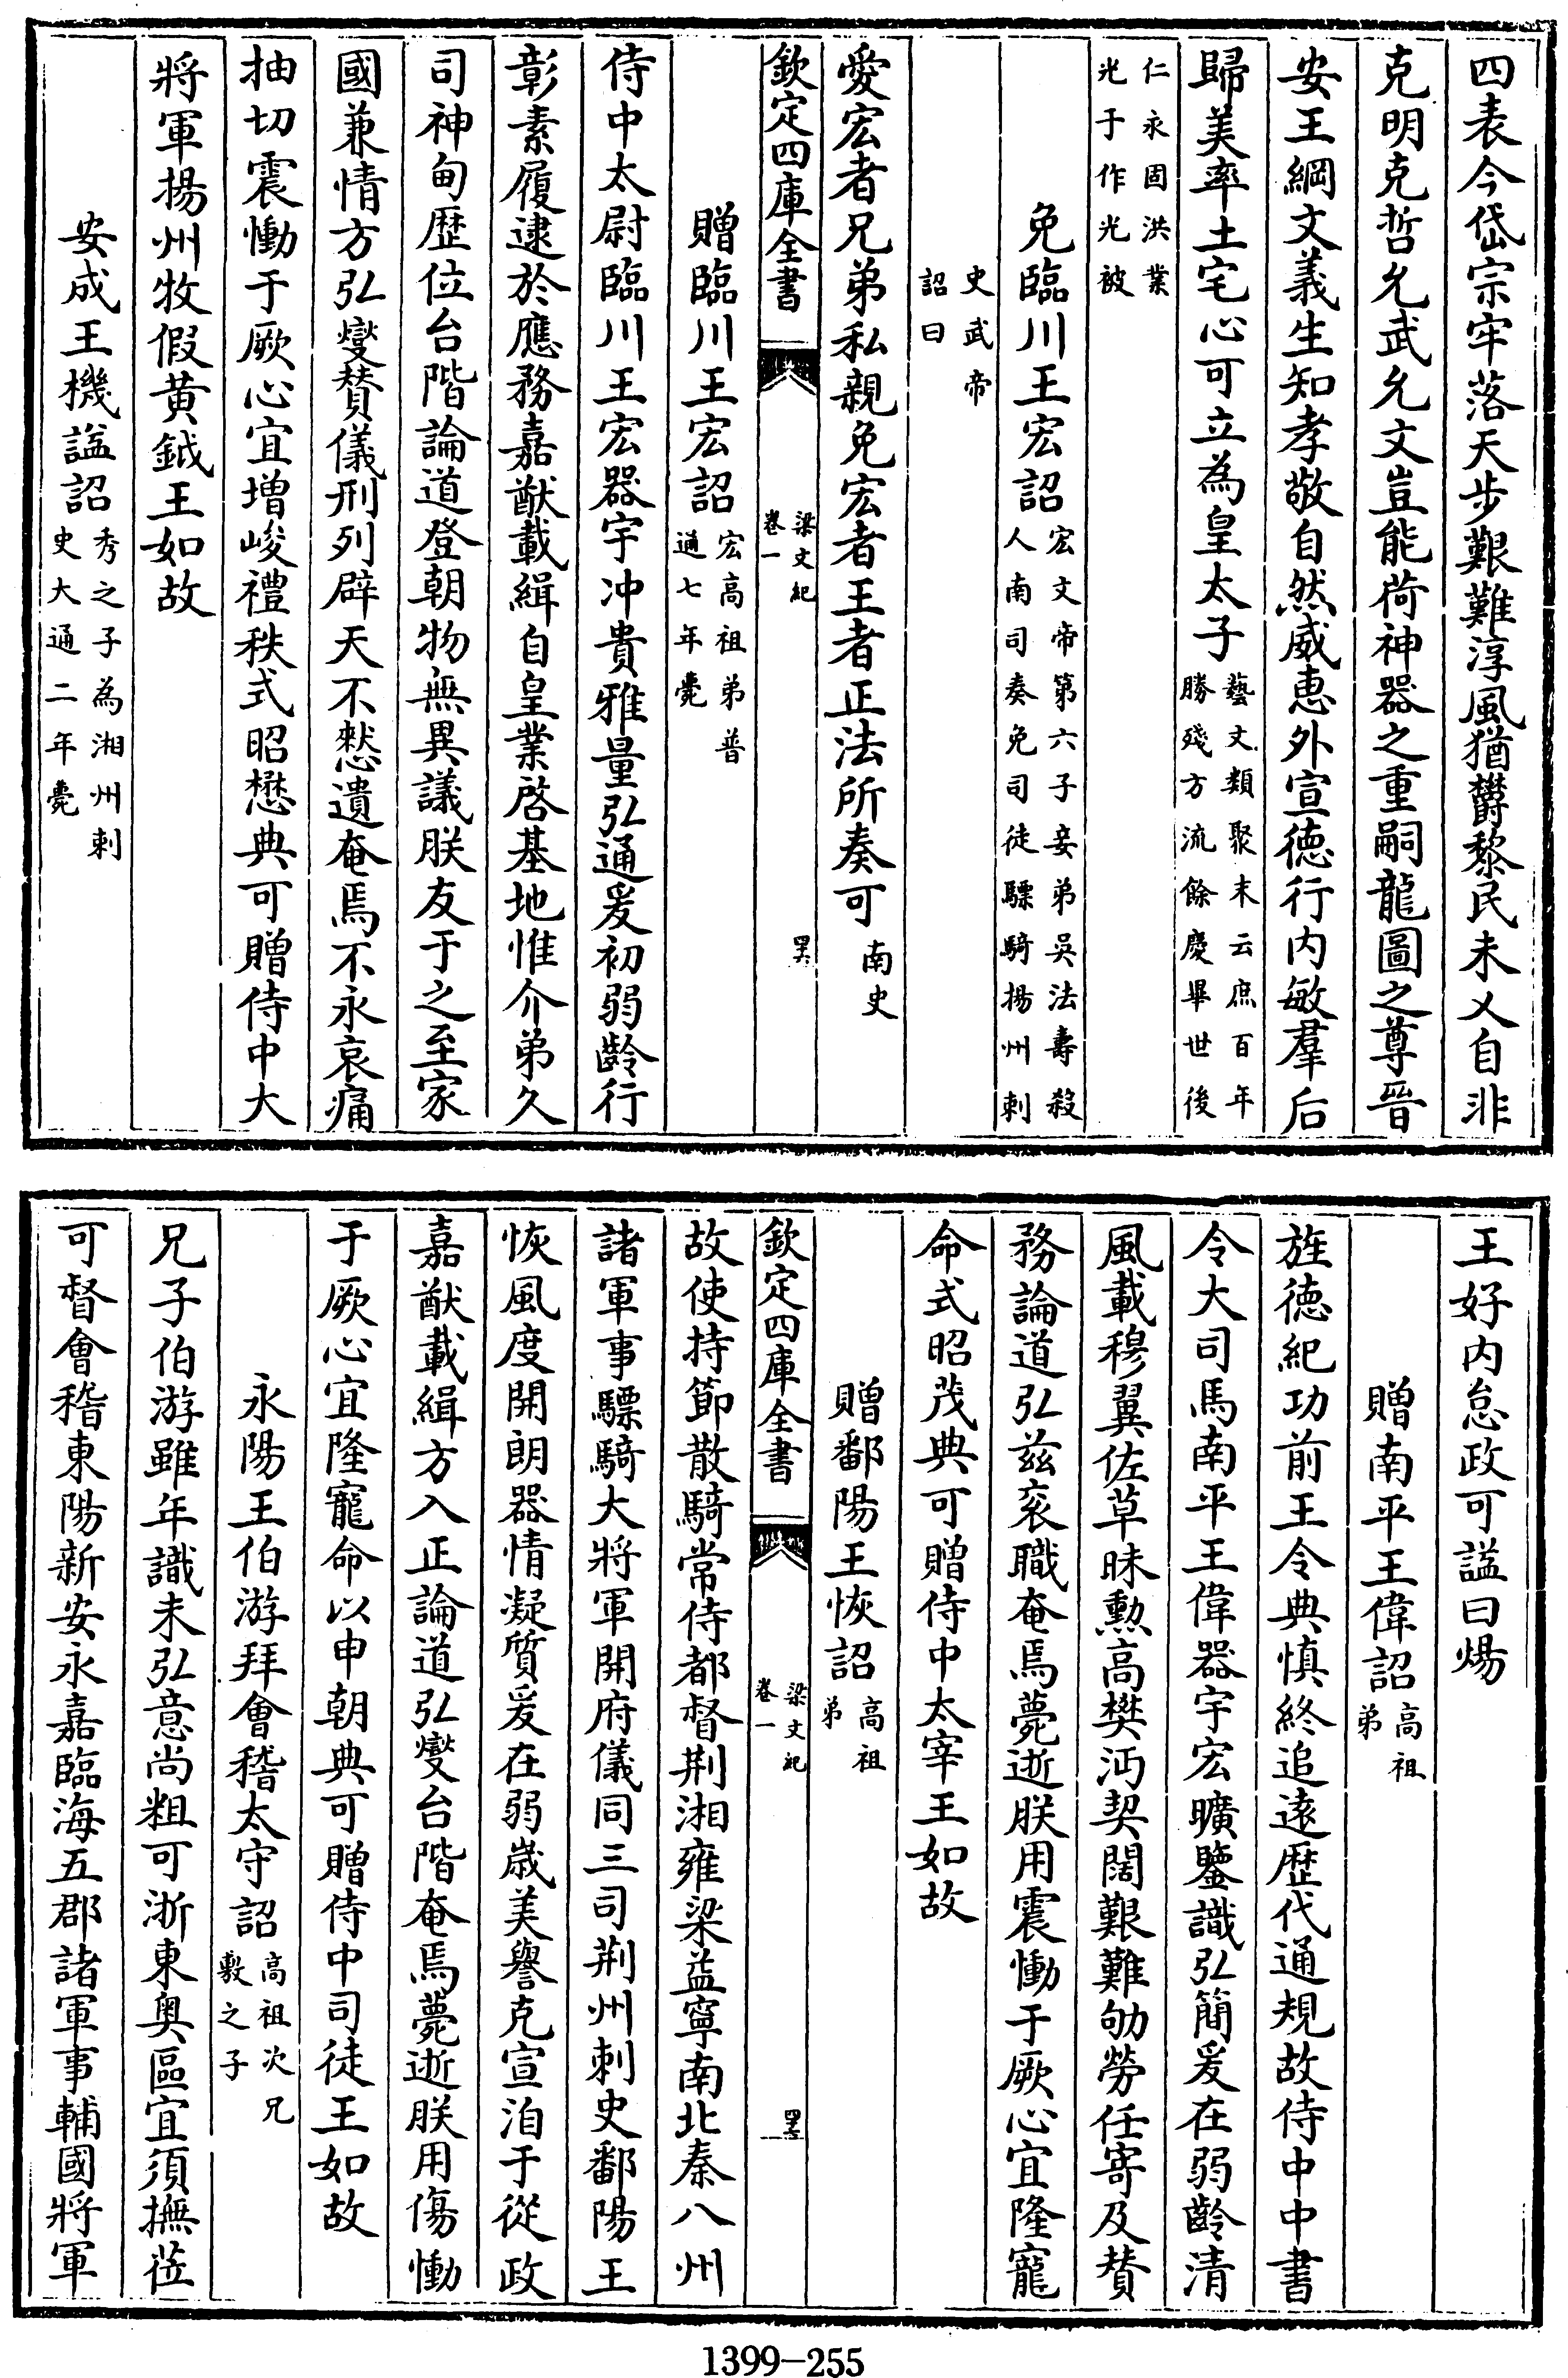 四表今岱宗牢落天步艱難淳風猶鬱黎民未乂自非
克明克哲允武允文豈能荷神器之重嗣龍圖之尊晉
安王綱文義生知孝敬自然威惠外宣德行内敏羣后
歸美率土宅心可立為皇太子藝文類聚末云庶百年
勝殘方流餘慶畢世後
仁永固洪業
光于作光被
免臨川王宏詔宏文帝第六子妾弟吳法壽殺
人南司奏免司徒驃騎揚州刺
史武帝
詔曰
愛宏者兄弟私親免宏者王者正法所奏可南史
欽定四庫全書
梁文紀
卷一
侍中太尉臨川王宏器宇冲貴雅量弘通爰初弱齡行
贈臨川王宏詔宏高祖弟普
通七年薨
彰素履逮於應務嘉猷載緝自皇業啓基地惟介弟久
司神甸歷位台階論道登朝物無異議朕友于之至家
國兼情方弘燮賛儀刑列辟天不憖遺奄焉不永哀痛
抽切震慟于厥心宜增峻禮秩式昭懋典可贈侍中大
將軍揚州牧假黃鉞王如故
安成王機諡詔秀之子為湘州刺
史大通二年薨
王好内怠政可諡曰煬
贈南平王偉詔高祖
弟
旌德紀功前王令典慎終追遠歷代通規故侍中中書
令大司馬南平王偉器宇宏曠鑒識弘簡爰在弱齡清
風載穆翼佐草昧勲高樊沔契闊艱難劬勞任寄及賛
務論道弘兹衮職奄焉薨逝朕用震慟于厥心宜隆寵
命式昭茂典可贈侍中太宰王如故
贈鄱陽王恢詔高祖
弟
欽定四庫全書
梁文紀
卷一
故使持節散騎常侍都督荆湘雍梁益寧南北秦八州
諸軍事驃騎大將軍開府儀同三司荆州刺史鄱陽王
恢風度開朗器情凝質爰在弱歲美譽克宣洎于從政
嘉猷載緝方入正論道弘燮台階奄焉薨逝朕用傷慟
于厥心宜隆寵命以申朝典可贈侍中司徒王如故
永陽王伯游拜會稽太守詔高祖次兄
敷之子
兄子伯游雖年識未弘意尚粗可浙東奥區宜須撫莅
可督會稽東陽新安永嘉臨海五郡諸軍事輔國將軍
1399-255